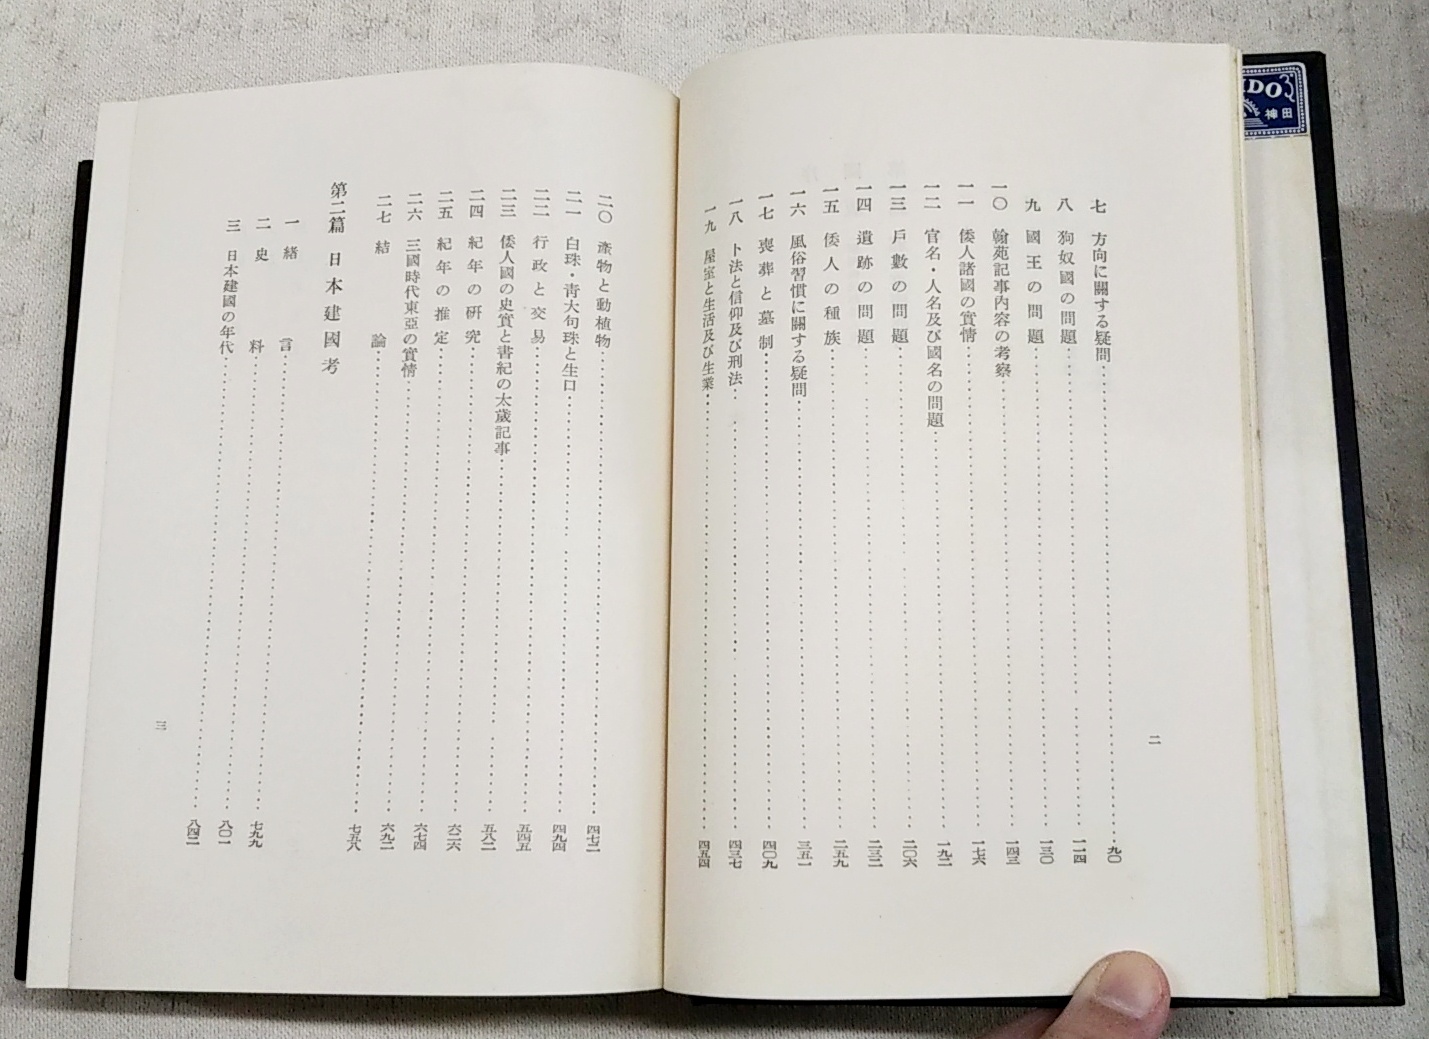 IDO
神田
二
七 方向に關する疑問……九〇
八 狗奴國の問題……一一四
九 國王の問題……一三〇
一〇 翰苑記事內容の考察……一四三
一一 倭人諸國の實情……一七六
一二 官名・人名及び國名の問題……一九二
一三 戶數の問題……二〇六
一四 遺跡の問題……二三二
一五 倭人の種族……二五九
一六 風俗習慣に關する疑問……三五一
一七 喪葬と墓制……四〇九
一八 卜法と信仰及び刑法……四三七
一九 屋室と生活及び生業……四五四
二〇 產物と動植物……四七二
二一 白珠・靑大句珠と生口……四九四
二二 行政と交易……五四五
二三 倭人國の史實と書紀の太歲記事……五八二
二四 紀年の硏究……六二六
二五 紀年の推定……六七四
二六 三國時代東亞の實情……六九二
二七 結論……七五八
第二篇 日本建國考
一 緖言……七九九
二 史料……八〇一
三 日本建國の年代……八四二
三